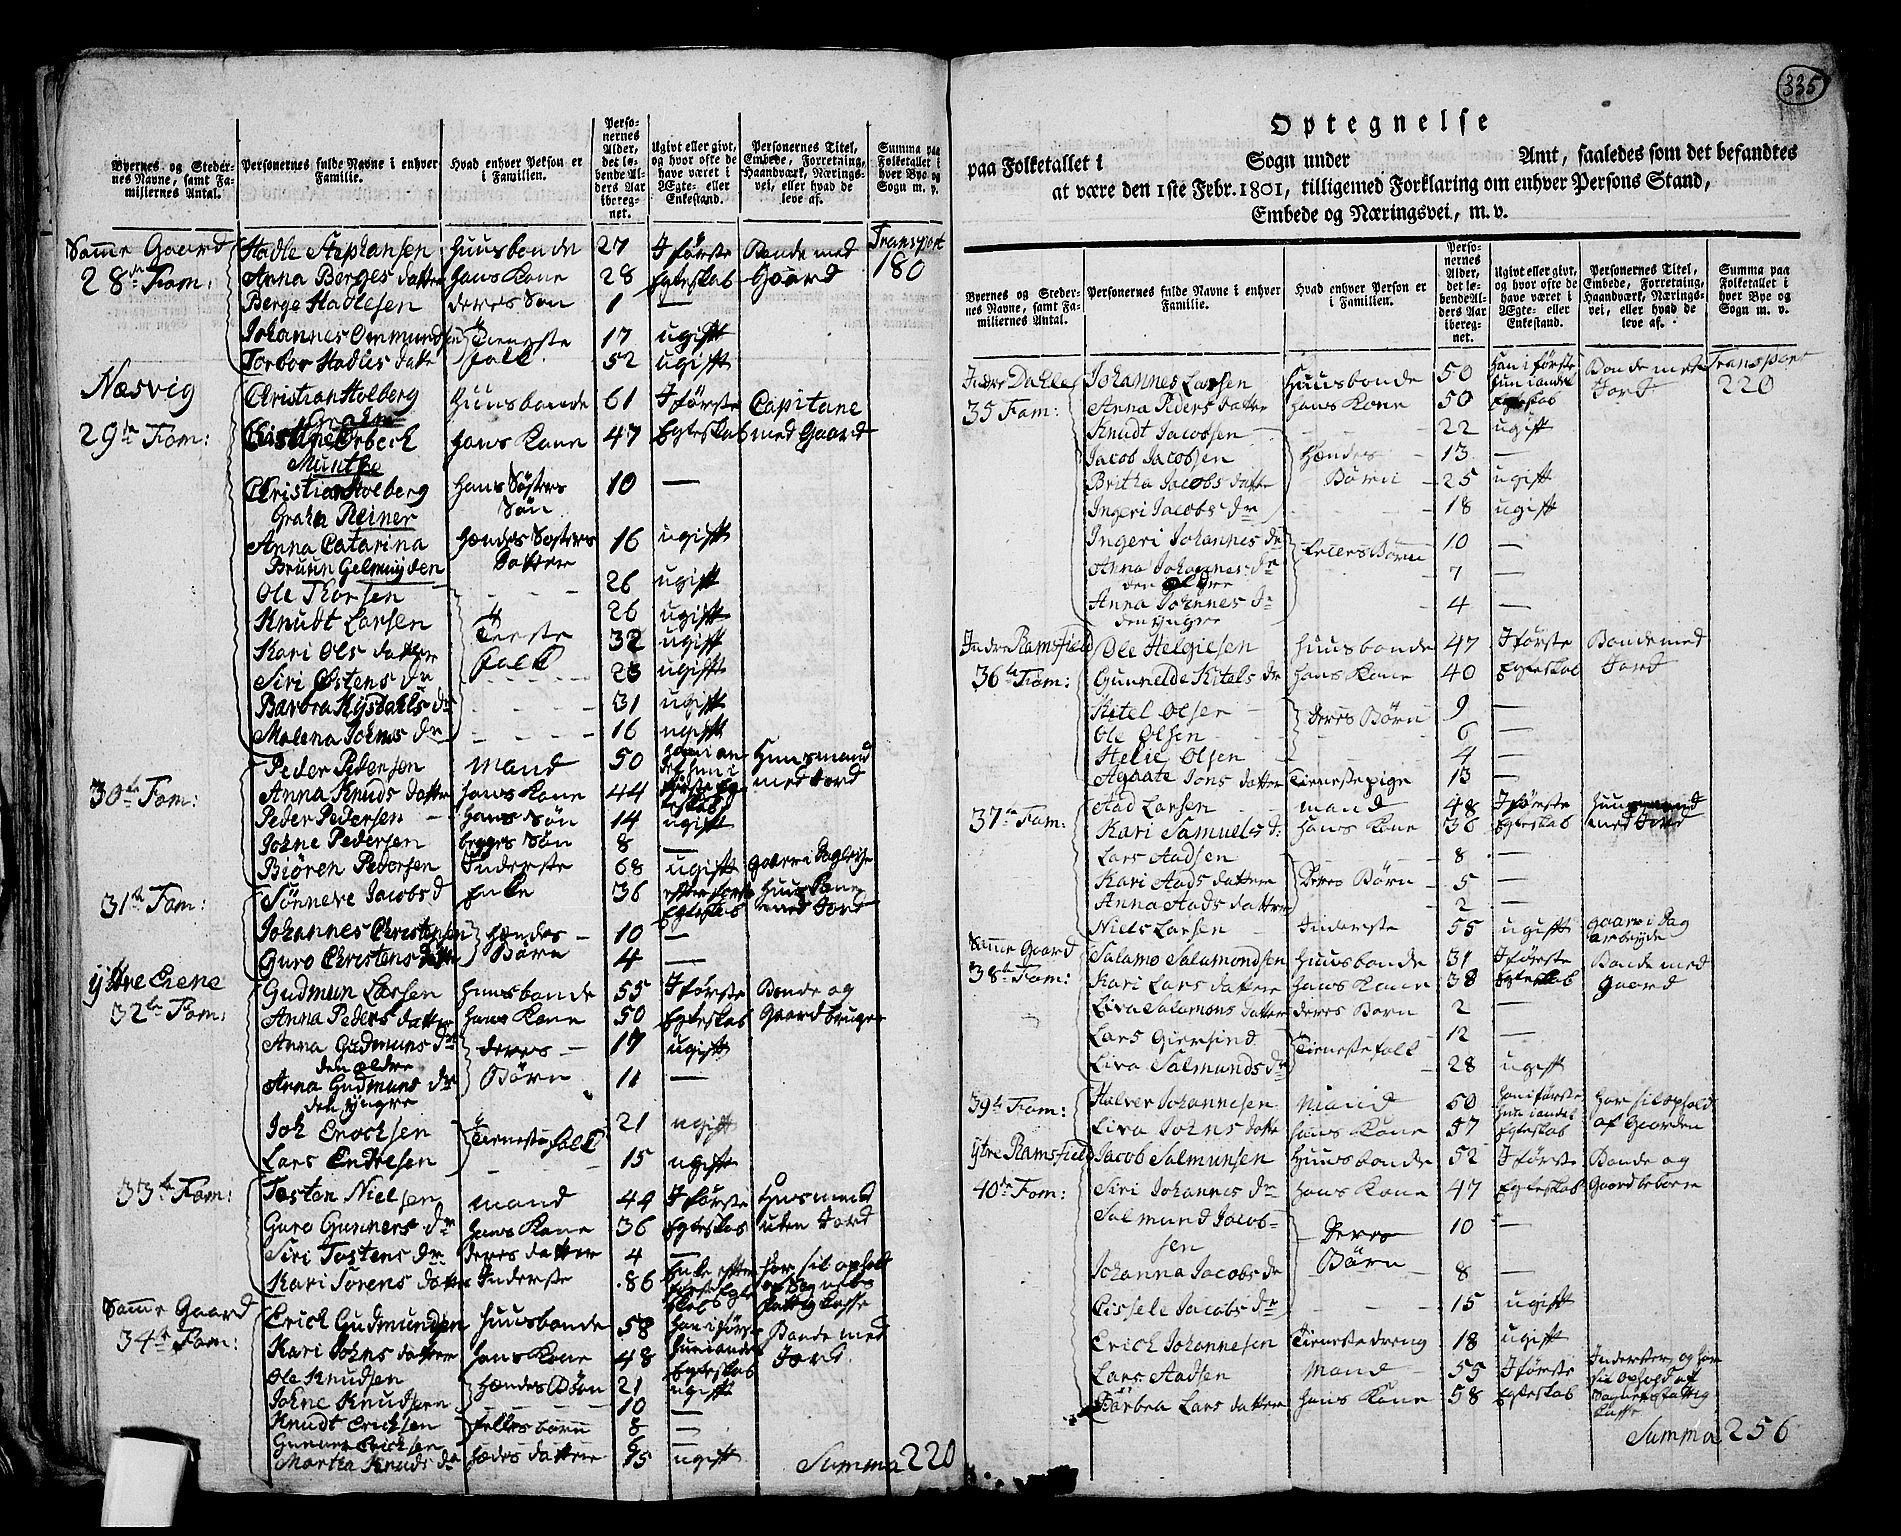 335
Byernes og Steder-
nes Navne, samt Fa-
miliernes Antal.
Personernes fulde Navne i enhver
Familie.
Hvad enhver Person er
i Familien.
Perso-
nernes
Alder,
det lø-
bende Al-
ders Aar
iberegnet.
Ugivt eller givt,
og hvor ofte de
have været i
Ægte- eller
Enkestand.
Personernes Titel,
Embede, Forretning,
Haandværk, Nærings-
vei, eller hvad de
leve af.
Summa paa
Folketallet i
hver Bye og
Sogn m. v.
Samme Gaard Hadle Stephansen Huusbonde 27 I første Bonde med Transport
28de Fam: Anna Berges datter hans Kone 28 Egteskab Gaard 180
Berge Hadlesen deres Søn 1 —
Johannes Ommundsen Tieneste 17 ugift
Torbor Hadles datt folk 52 ugift
Næsvig Christian Holberg Huusbonde 61 I første Capitane
29de Fam: Christine Orbech hans Kone 47 Egteskab med Gaard
Munthe
Christian Holberg hans Søsters 10 —
Grahn Reiner Søn
Anna Catarina Hendes Søsters 16 ugift
Bruun Gelmuyden Datter
Ole Thorsen 26 ugift
Knudt Larsen 26 ugift
Kari Ols datter 32 ugift
Siri Østens dr folk 23 ugift
Barbra 31 ugift
Malena Johnes dr 16 ugift
Peder Pedersen mand 50 Huusmand
30de Fam: Anna Knuds datter hans Kone 44 med Jord
Peder Pedersen hans Søn 14 ugift
Johne Pedersen begges Søn 8 —
Biören Pedersen Inderste 68 ugift
31te Fam: Jacobs d Enke 36 Egteskab med Jord
Johannes Christensen Hendes 10 —
Guro Christens datter Børn 4 —
Ytre Eiene Gudmun Larsen Huusbonde 55 I første Bonde og
32te Fam: Anna Peders datter hans Kone 50 Egteskab Gaardbruger
Anna Gudmuns dr deres 17 ugift
den ældre
Anna Gudmuns dr Børn 11 —
den yngre
Joh Enochsen Tieneste folk 21 ugift
Lars Endresen 15 ugift
33te Fam: Tosten Nielsen mand 44 I første Huusmand
Guro Gunners dr hans Kone 36 Egteskab uden Jord
Siri Tostens dr deres datter 4 —
Kari Sørens datter Inderste 86 Enke efter har sit ophold
første af Sognets
fattig Casse
Samme Gaard Erich Gudmundsen Huusbonde 58 Han i første Bonde med
34te Fam: Kari Johns datter hans Kone 48 hun i andet Jord
Egteskab
Ole Knudsen Hendes Børn 21 ugift
Johne Knudsen 10 —
Knudt Erichsen felles børn 8 —
Gunner Erichsen 6 —
Martha Knuds dr Hendes datter 15 ugift
Summa 220
Optegnelse
paa Folketallet i Sogn under Amt, saaledes som det befandtes
at være den 1ste Febr. 1801, tilligemed Forklaring om enhver Persons Stand,
Embede og Næringsvei, m. v.
Byernes og Steder-
nes Navne, samt Fa-
miliernes Antal.
Personernes fulde Navne i enhver
Familie.
Hvad enhver Person er
i Familien.
Perso-
nernes
Alder,
det lø-
bende Al-
ders Aar
iberegnet.
Ugivt eller givt,
og hvor ofte de
have været i
Ægte- eller
Enkestand.
Personernes Titel,
Embede, Forretning,
Haandværk, Nærings-
vei, eller hvad de
leve af.
Summa paa
Folketallet i
hver Bye og
Sogn m. v.
Indre Dahle Johannes Larsen Huusbonde 50 Han i første Bonde med Transport
hun i andet Jord 220
35 Fam: Anna Peders datter hans Kone 50 Egteskab
Knudt Jacobsen 22 ugift
Jacob Jacobsen Hendes 13 —
Britha Jacobs datter Børn 25 ugift
Ingeri Jacobs dr 18 ugift
Ingeri Johannes dr felles Børn 10 —
Anna Johannes dr 7 —
den ældre
Anna Johnnes dr 4 —
den yngre
Indre Ramsfield Ole Helgiesen Huusbonde 47 I første Bonde med
36te Fam: Gunnelde Kitels dr hans Kone 40 Egteskab Jord
Kitel Olsen deres Børn 9 —
Ole Olsen 6 —
Helie Olsen 4 —
Agaate Jons datter Tienestepige 13 —
37te Fam: Aad Larsen mand 48 I første Huusmand
Kari Samuels dr hans Kone 36 Egteskab med Jord
Lars Aadsen 8 —
Kari Aads datter deres Børn 5 —
Anna Aads datter 2 —
Niels Larsen Inderste 55 ugift gaaer i Dag
arbeyde
Samme Gaard Salamo Salamondsen Huusbonde 31 I første Bonde med
38te Fam: Kari Lars datter hans Kone 38 Egteskab Gaard
Liva Salamons datter deres Barn 2 —
Lars Giersind Tienestefolk 12 —
Liva Salmunds dr 28 ugift
39te Fam: Halver Johannesen mand 50 Han i første har sit ophold
hun i andet af Gaarden
Liva Johns datter hans Kone 57 Egteskab
Ytre Ramsfield Jacob Salmunsen Huusbonde 52 I første Bonde og
40de Fam: Siri Johannes dr hans Kone 47 Egteskab Gaardbeboere
Salmund Jacob- Deres 10 —
sen
Johanna Jacobs dr Børn 8 —
Cissele Jacobs dr 15 ugift
Erich Johannesen Tienestedreng 18 ugift
Lars Aadsen mand 55 I første Inderster, og har
sit ophold af
Barbra Lars datter hans Kone 58 Egteskab Sognets fattig
Casse
Summa 256